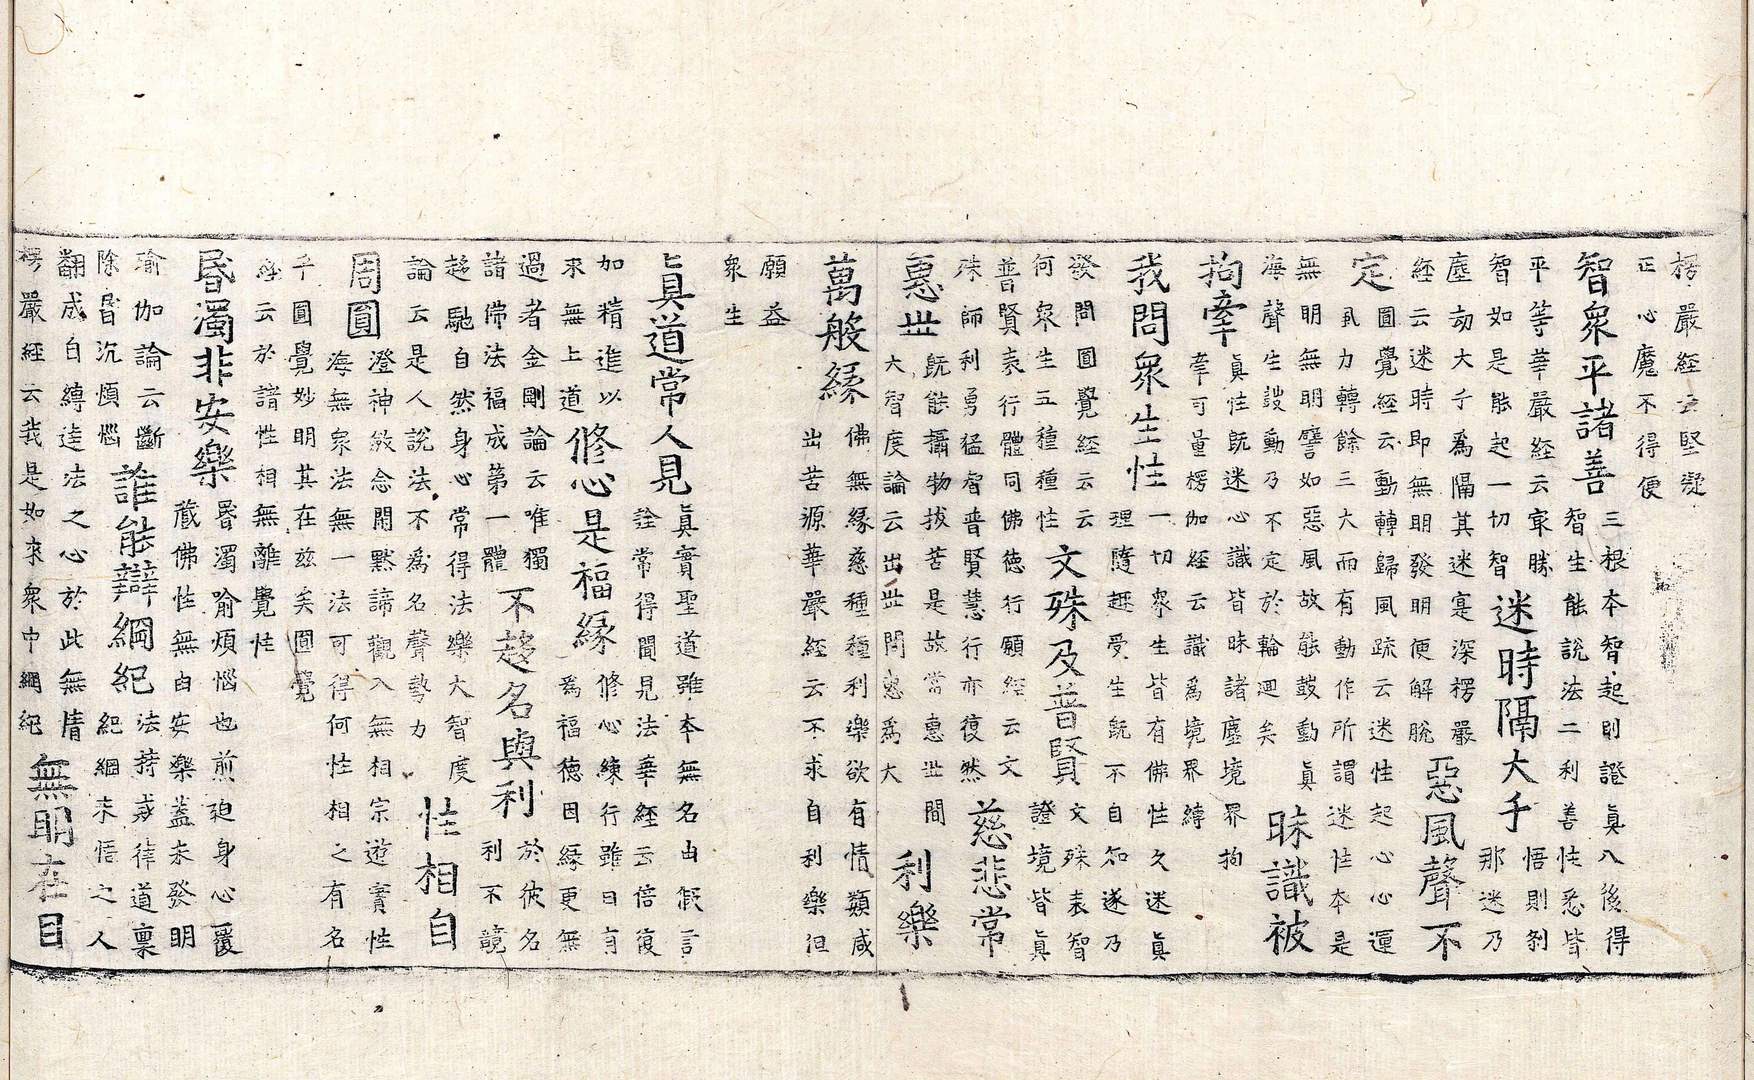 楞嚴経云堅凝
正心魔不得便
智衆平諸善
三根本智起則證真八後得
智生能說法二利善性悉皆
平等華嚴経云㝡勝
智如是能起一切智
迷時隔大千
悟則刹
那迷乃
塵劫大千爲隔其迷寔深楞嚴
経云迷時即無明發明便解脫
惡風聲不
定
圓覺経云動轉歸風疏云迷性起心心運
風力轉餘三大而有動作所謂迷性本是
無明無明譬如惡風故能鼓動真
海聲生設動乃不定於輪迴矣
昧識被
拘牽
真性旣迷心識皆昧諸塵境界拘
牽可量楞伽経云識爲境界縛
我問衆生性
一切衆生皆有佛性久迷真
理隨趣受生旣不自知遂乃
發問圓覺経云云
何衆生五種種性
文殊及普賢
文殊表智
證境皆真
普賢表行體同佛德行願経云文
殊師利勇猛智普賢慧行亦復然
慈悲常
惠世
旣能攝物拔苦是故常惠世間
大智度論云出世間惠爲大
利樂
萬般縁
佛無縁慈種種利樂欲有情類咸
出苦源華嚴経云不求自利樂但
願益
衆生
真道常人見
真實聖道雖本無名由假言
詮常得聞見法華経云倍復
加精進以
求無上道
修心是福縁
修心練行雖曰有
爲福德因縁更無
過者金剛論云唯獨
諸佛法福成第一體
不趍名與利
於彼名
利不競
趍馳自然身心常得法樂大智度
論云是人說法不爲名聲勢力
性相自
周圓
澄神斂念閴默諦觀入無相宗遊實性
海無衆法無一法可得何性相之有名
千圓覺妙明其在茲矣圓覺
経云於諸性相無離覺性
昬濁非安樂
昬濁喻煩惱也煎迫身心覆
藏佛性無由安樂蓋未發明
瑜伽論云斷
除昬沉煩惱
誰能辯綱紀
法持戒律道禀
紀綱未悟之人
翻成自縛違法之心於此無情
楞嚴経云我是如來衆中綱紀
無明在目